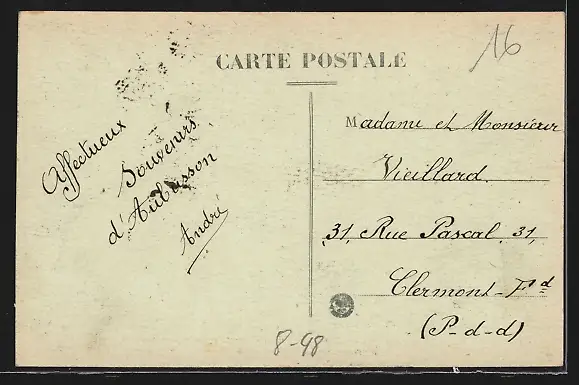 CARTE POSTALE
16
Affectueux
Souvenirs
d'Aubusson
André
Madame et Monsieur
Vieillard.
31, Rue Pascal, 31,
Clermont-Fd
(P-d-d)
8-98